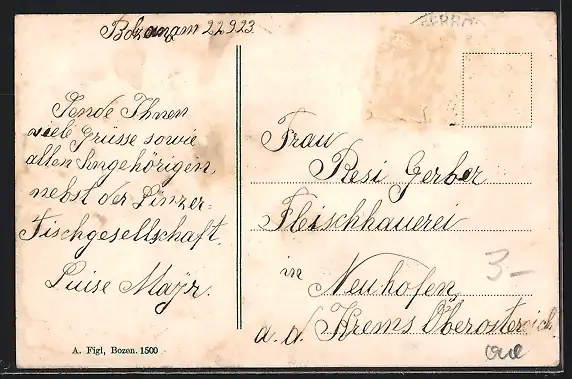 Bolzano am 22923
Sende Ihnen
viele Grüsse sowie
allen Angehörigen,
nebst der Linzer-
Tischgesellschaft
Luise Mayr.
Frau
Resi Gerber
Fleischhauerei
in
Neuhofen,
a. d. Krems Oberösterreich
3-
A. Figl, Bozen. 1500